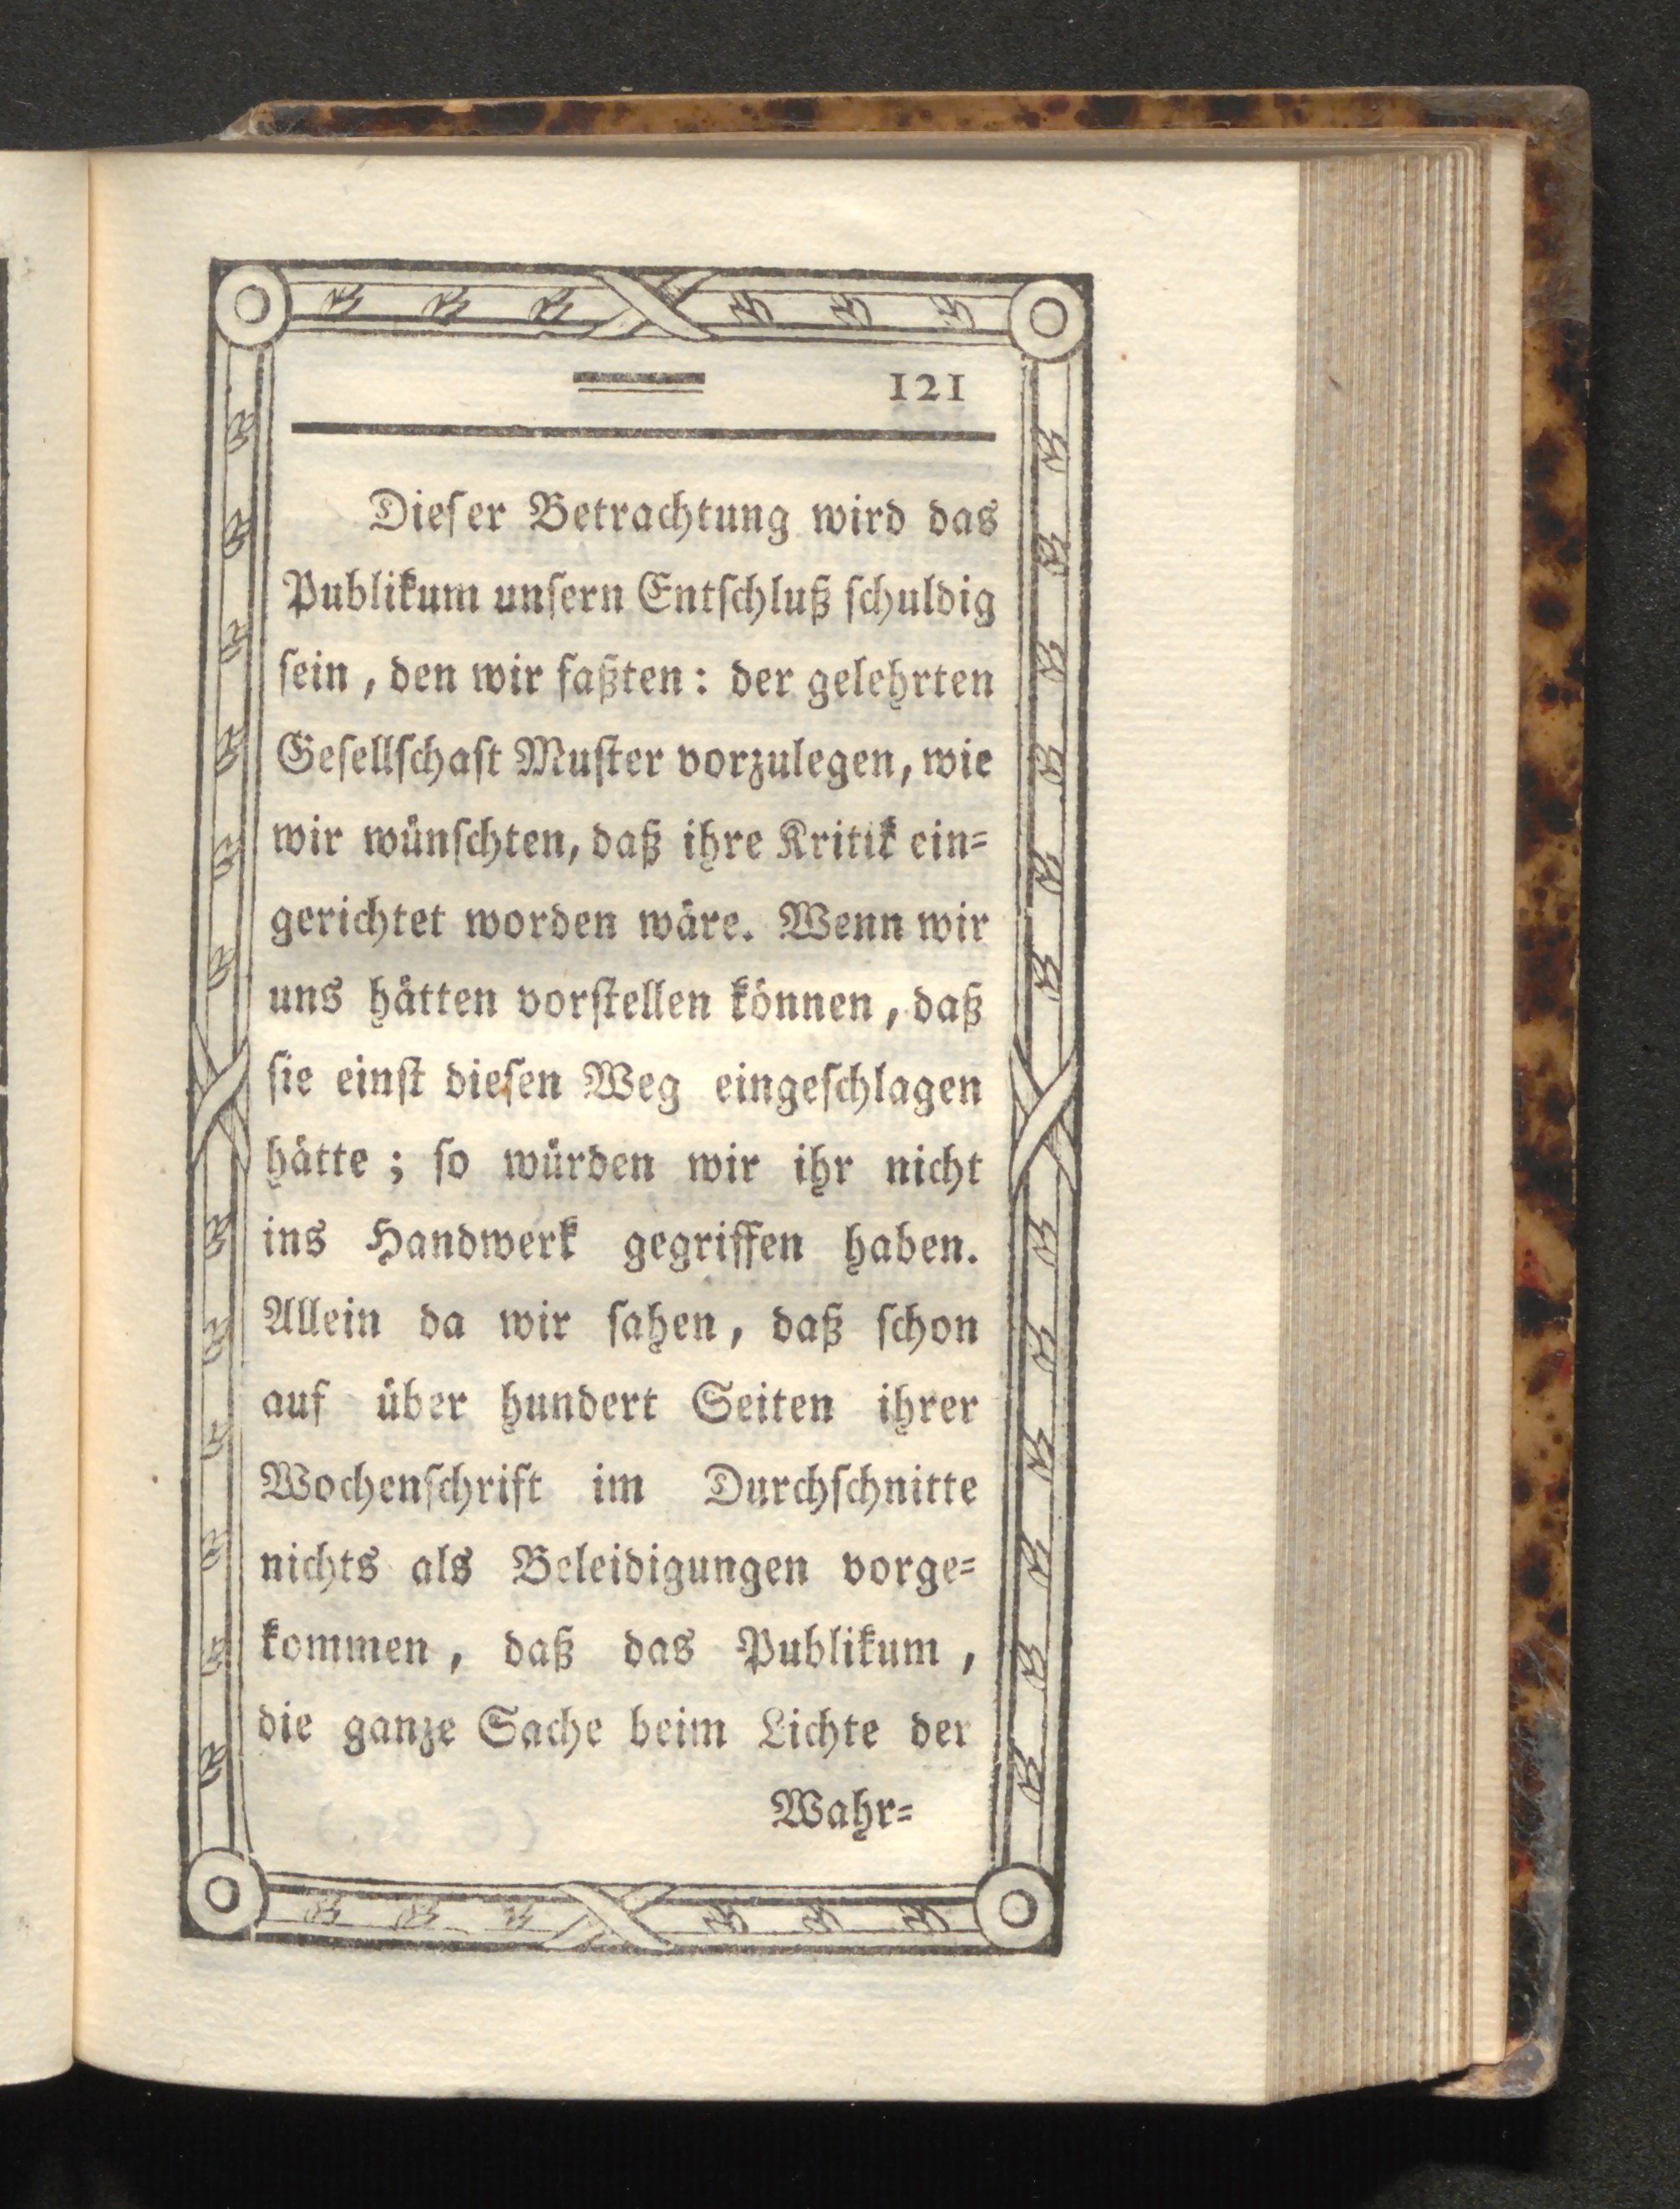 121
Dieſer Betrachtung wird das
Publikum unſern Entſchluß ſchuldig
ſein, den wir faßten: der gelehrten
Geſellſchaft Muſter vorzulegen, wie
wir wünſchten, daß ihre Kritik ein⸗
gerichtet worden wäre. Wenn wir
uns hätten vorſtellen können, daß
ſie einſt dieſen Weg eingeſchlagen
hätte; ſo würden wir ihr nicht
ins Handwerk gegriffen haben.
Allein da wir ſahen, daß ſchon
auf über hundert Seiten ihrer
Wochenſchrift im Durchſchnitte
nichts als Beleidigungen vorge⸗
kommen, daß das Publikum,
die ganze Sache beim Lichte der
Wahr⸗